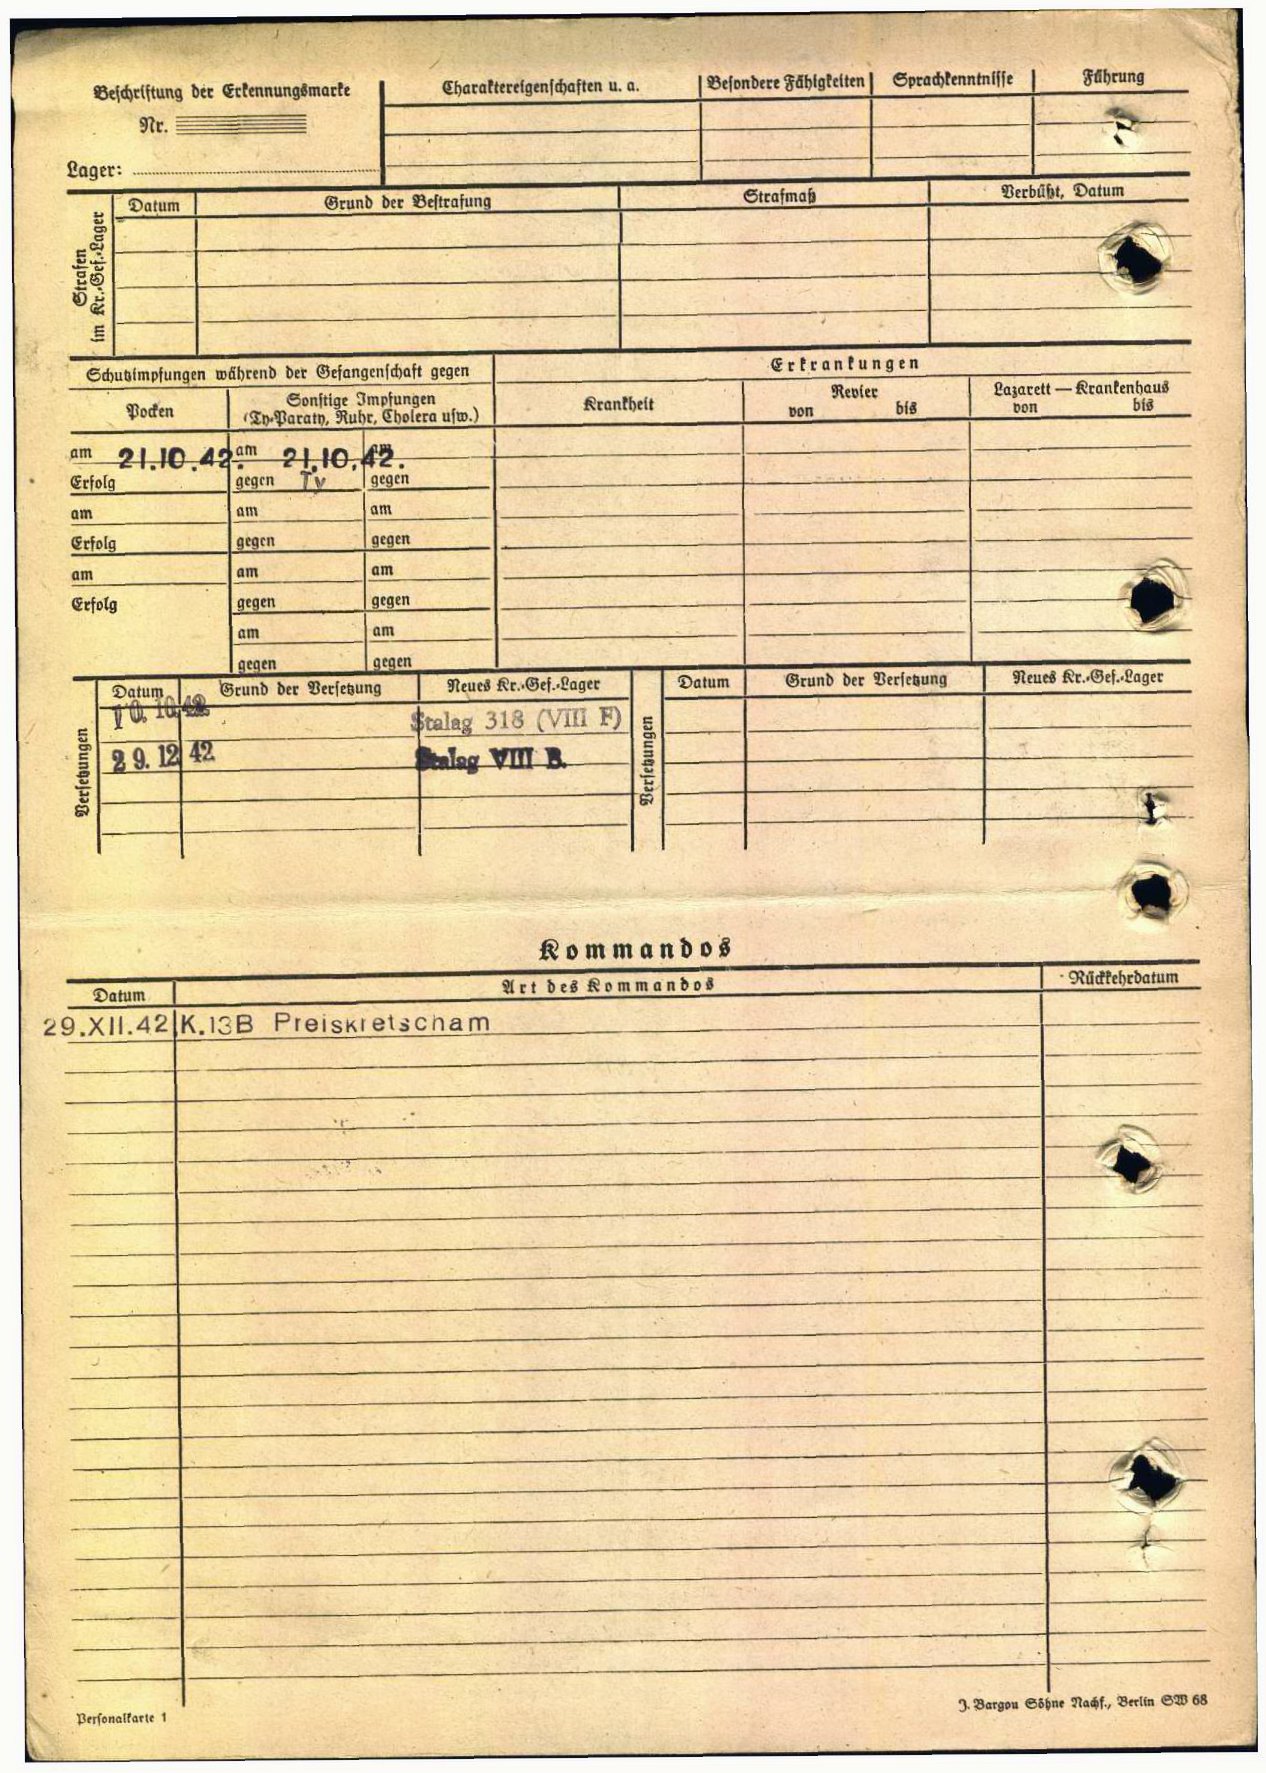 Beschriftung der Erkennungsmarke
Nr.
Lager:
Charaktereigenschaften u. a.
Besondere Fähigkeiten
Sprachkenntnisse
Führung
Strafen
im Kr.-Gef.-Lager
Datum
Grund der Bestrafung
Strafmaß
Verbüßt, Datum
Schutzimpfungen während der Gefangenschaft gegen
Erkrankungen
Pocken
Sonstige Impfungen
(Ty-Paraty, Ruhr, Cholera usw.)
Krankheit
Revier
von bis
Lazarett — Krankenhaus
von bis
am 21.10.42. am 21.10.42. am
Erfolg gegen Ty gegen
am am am
Erfolg gegen gegen
am am am
Erfolg gegen gegen
am am
gegen gegen
Versetzungen
Datum Grund der Versetzung Neues Kr.-Gef.-Lager
10. 10. 42 Stalag 318 (VIII F)
29. 12 42 Stalag VIII B.
Versetzungen
Datum Grund der Versetzung Neues Kr.-Gef.-Lager
Kommandos
Datum Art des Kommandos Rückkehrdatum
29.XII.42 K.13B Preiskretscham
Personalkarte 1
J. Bargou Söhne Nachf., Berlin SW 68